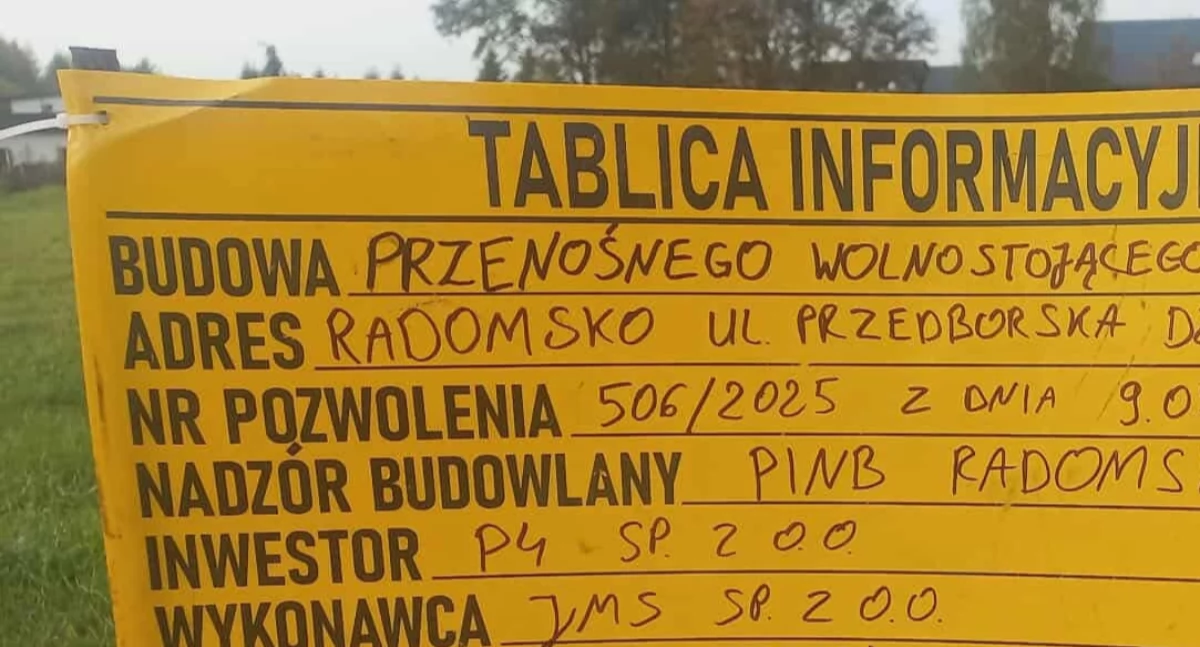 TABLICA INFORMACYJ
BUDOWA PRZENOŚNEGO WOLNOSTOJĄCEGO
ADRES RADOMSKO UL. PRZEDBORSKA
NR POZWOLENIA 506/2025 Z DNIA 9.0
NADZÓR BUDOWLANY PINB RADOMS
INWESTOR P4 SP. Z O.O.
WYKONAWCA JMS SP. Z O.O.